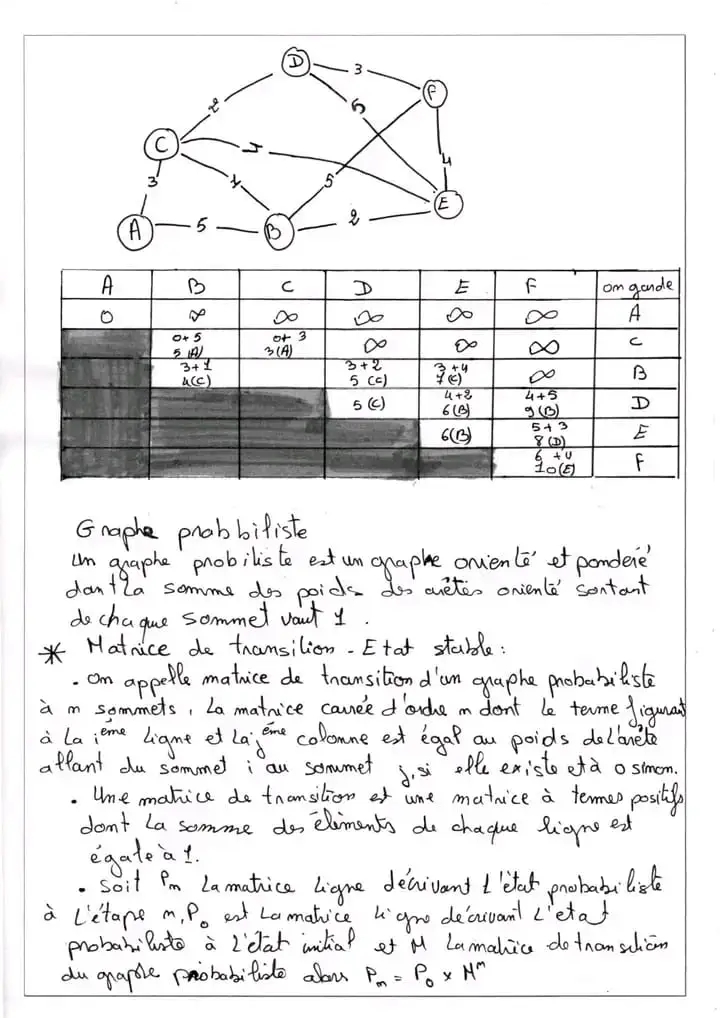 D
3
F
2
5
C
4
4
3
1
5
E
A
5
B
2
A B C D E F on garde
0 ∞ ∞ ∞ ∞ ∞ A
0+5 0+3
5(A) 3(A) ∞ ∞ ∞ C
3+1 3+2 3+4
4(C) 5(C) 7(C) ∞ B
4+2 4+5
5(C) 6(B) 9(B) D
5+3
6(B) 8(D) E
6+4
10(E) F
Graphe probbiliste
Un graphe probiliste est un graphe orienté et ponderé
dont la somme des poids des arêtes orienté sortant
de chaque sommet vaut 1.
* Matrice de transition - Etat stable :
• On appelle matrice de transition d'un graphe probabiliste
à n sommets, la matrice carrée d'ordre n dont le terme figurant
à la ième ligne et la jème colonne est égal au poids de l'arête
allant du sommet i au sommet j, si elle existe et à 0 sinon.
• Une matrice de transition est une matrice à termes positifs
dont la somme des éléments de chaque ligne est
égale à 1.
• Soit Pn la matrice ligne décrivant l'état probabiliste
à l'étape n, P0 est la matrice ligne décrivant l'etat
probabiliste à l'état initial et M la matrice de transition
du graphe probabiliste alors Pn = P0 x M^n